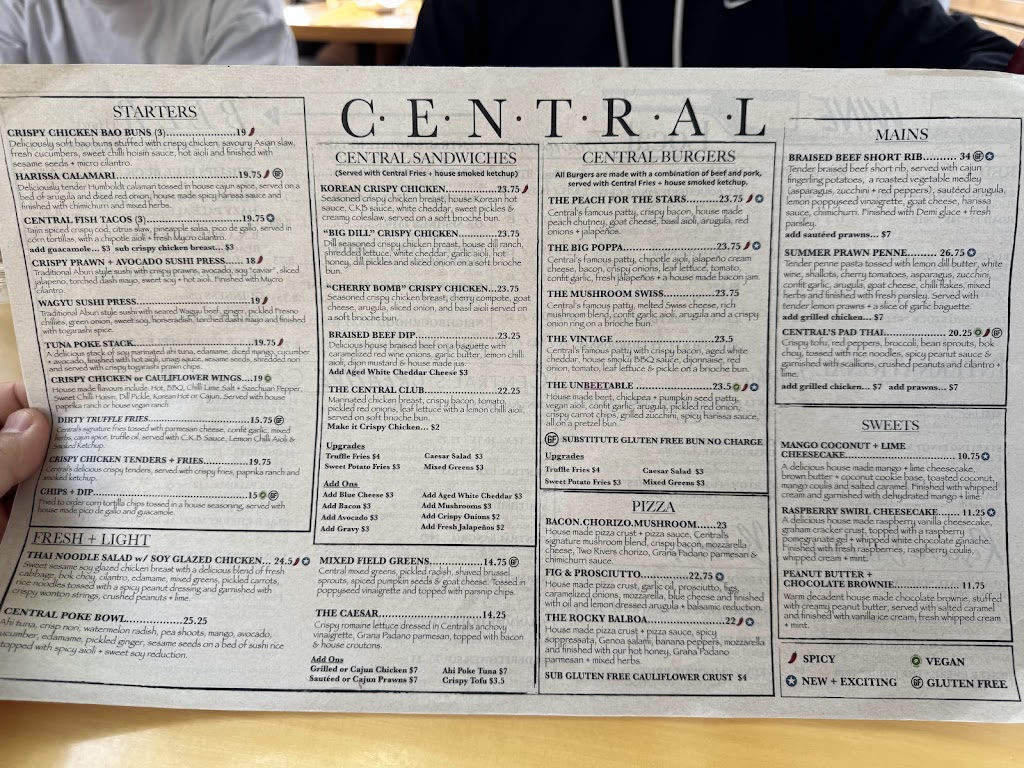 C·E·N·T·R·A·L
STARTERS
CRISPY CHICKEN BAO BUNS (3)....................19
Deliciously soft bao buns stuffed with crispy chicken, savoury Asian slaw,
fresh cucumbers, sweet chilli hoisin sauce, hot aioli and finished with
sesame seeds + micro cilantro.
HARISSA CALAMARI....................19.75
Deliciously tender Humboldt calamari tossed in house cajun spice, served on a
bed of arugula and diced red onion, house made spicy harissa sauce and
finished with chimichurri and mixed herbs.
CENTRAL FISH TACOS (3)....................19.75
Tajin spiced crispy cod, citrus slaw, pineapple salsa, pico de gallo, served in
corn tortillas, with a chipotle aioli + fresh Mycro cilantro.
add guacamole... $3 sub crispy chicken breast... $3
CRISPY PRAWN + AVOCADO SUSHI PRESS...... 18
Traditional Aburi style sushi with crispy prawns, avocado, soy "caviar", sliced
jalapeno, torched dash mayo, sweet soy + hot aioli. Finished with Mycro
cilantro.
WAGYU SUSHI PRESS....................19
Traditional Aburi style sushi with seared Wagyu beef, ginger, pickled Fresno
chillies, green onion, sweet soy, horseradish, torched dashi mayo and finished
with togarashi spice.
TUNA POKE STACK....................19.75
A delicious stack of soy marinated ahi tuna, edamame, diced mango, cucumber
+ avocado, finished with hot aioli, unagi sauce, sesame seeds, shredded nori
and served with crispy togarashi prawn chips.
CRISPY CHICKEN or CAULIFLOWER WINGS....19
House made flavours include Hot, BBQ, Chili Lime Salt + Szechuan Pepper,
Sweet Chilli Hoisin, Dill Pickle, Korean Hot or Cajun. Served with house
paprika ranch or house vegan ranch.
DIRTY TRUFFLE FRIES....................15.75
Central's signature fries tossed with parmesan cheese, confit garlic, mixed
herbs, cajun spice, truffle oil, served with C.K.B Sauce, Lemon Chilli Aioli &
Smoked Ketchup.
CRISPY CHICKEN TENDERS + FRIES..............19.75
Central's delicious crispy tenders, served with crispy fries, paprika ranch and
smoked ketchup.
CHIPS + DIP....................15
Fried to order corn tortilla chips tossed in a house seasoning, served with
house made pico de gallo and guacamole.
FRESH + LIGHT
THAI NOODLE SALAD w/ SOY GLAZED CHICKEN... 24.5
Sweet sesame soy glazed chicken breast with a delicious blend of fresh
cabbage, bok choy, cilantro, edamame, mixed greens, pickled carrots,
rice noodles tossed with a spicy peanut dressing and garnished with
crispy wonton strings, crushed peanuts + lime.
CENTRAL POKE BOWL..............25.25
Ahi tuna, crisp nori, watermelon radish, pea shoots, mango, avocado,
cucumber, edamame, pickled ginger, sesame seeds on a bed of sushi rice
topped with spicy aioli + sweet soy reduction.
MIXED FIELD GREENS....................14.75
Central mixed greens, pickled radish, shaved brussel
sprouts, spiced pumpkin seeds & goat cheese. Tossed in
poppyseed vinaigrette and topped with parsnip chips.
THE CAESAR....................14.25
Crispy romaine lettuce dressed in Central's anchovy
vinaigrette, Grana Padano parmesan, topped with bacon
& house croutons.
Add Ons
Grilled or Cajun Chicken $7 Ahi Poke Tuna $7
Sautéed or Cajun Prawns $7 Crispy Tofu $3.5
CENTRAL SANDWICHES
(Served with Central Fries + house smoked ketchup)
KOREAN CRISPY CHICKEN....................23.75
Seasoned crispy chicken breast, house Korean hot
sauce, CKB sauce, white cheddar, sweet pickles &
creamy coleslaw, served on a soft brioche bun.
"BIG DILL" CRISPY CHICKEN..............23.75
Dill seasoned crispy chicken breast, house dill ranch,
shredded lettuce, white cheddar, garlic aioli, hot
honey, dill pickles and sliced onion on a soft brioche
bun.
"CHERRY BOMB" CRISPY CHICKEN...23.75
Seasoned crispy chicken breast, cherry compote, goat
cheese, arugula, sliced onion, and basil aioli served on
a soft brioche bun.
BRAISED BEEF DIP....................23.25
Delicious house braised beef on a baguette with
caramelized red wine onions, garlic butter, lemon chilli
aioli, dijon mustard & house made jus.
Add Aged White Cheddar Cheese $3
THE CENTRAL CLUB....................22.25
Marinated chicken breast, crispy bacon, tomato,
pickled red onions, leaf lettuce with a lemon chilli aioli,
served on soft brioche bun.
Make it Crispy Chicken... $2
Upgrades
Truffle Fries $4 Caesar Salad $3
Sweet Potato Fries $3 Mixed Greens $3
Add Ons
Add Blue Cheese $3 Add Aged White Cheddar $3
Add Bacon $3 Add Mushrooms $3
Add Avocado $3 Add Crispy Onions $2
Add Gravy $3 Add Fresh Jalapeños $2
CENTRAL BURGERS
All Burgers are made with a combination of beef and pork,
served with Central Fries + house smoked ketchup.
THE PEACH FOR THE STARS..........23.75
Central's famous patty, crispy bacon, house made
peach chutney, goat cheese, basil aioli, arugula, red
onions + jalapeños.
THE BIG POPPA....................23.75
Central's famous patty, chipotle aioli, jalapeño cream
cheese, bacon, crispy onions, leaf lettuce, tomato,
confit garlic, fresh jalapeños + a house made bacon jam.
THE MUSHROOM SWISS..............23.75
Central's famous patty, melted Swiss cheese, rich
mushroom blend, confit garlic aioli, arugula and a crispy
onion ring on a brioche bun.
THE VINTAGE....................23.5
Central's famous patty with crispy bacon, aged white
cheddar, house smoky BBQ sauce, dijonnaise, red
onion, tomato, leaf lettuce & pickle on a brioche bun.
THE UNBEETABLE....................23.5
House made beet, chickpea + pumpkin seed patty,
vegan aioli, confit garlic, arugula, pickled red onion,
crispy carrot chips, grilled zucchini, spicy harissa sauce,
all on a pretzel bun.
GF SUBSTITUTE GLUTEN FREE BUN NO CHARGE
Upgrades
Truffle Fries $4 Caesar Salad $3
Sweet Potato Fries $3 Mixed Greens $3
PIZZA
BACON.CHORIZO.MUSHROOM......23
House made pizza crust + pizza sauce, Central's
signature mushroom blend, crispy bacon, mozzarella
cheese, Two Rivers chorizo, Grana Padano parmesan &
chimichurri sauce.
FIG & PROSCIUTTO..............22.75
House made pizza crust, garlic oil, prosciutto, figs,
caramelized onions, mozzarella, blue cheese and finished
with oil and lemon dressed arugula + balsamic reduction.
THE ROCKY BALBOA....................22
House made pizza crust + pizza sauce, spicy
soppressata, Genoa salami, banana peppers, mozzarella
and finished with our hot honey, Grana Padano
parmesan + mixed herbs.
SUB GLUTEN FREE CAULIFLOWER CRUST $4
MAINS
BRAISED BEEF SHORT RIB.......... 34
Tender braised beef short rib, served with cajun
fingerling potatoes, a roasted vegetable medley
(asparagus, zucchini + red peppers), sautéed arugula,
lemon poppyseed vinaigrette, goat cheese, harissa
sauce, chimichurri. Finished with Demi glace + fresh
parsley.
add sautéed prawns... $7
SUMMER PRAWN PENNE......... 26.75
Tender penne pasta tossed with lemon dill butter, white
wine, shallots, cherry tomatoes, asparagus, zucchini,
confit garlic, arugula, goat cheese, chilli flakes, mixed
herbs and finished with fresh parsley. Served with
tender lemon prawns + a slice of garlic baguette.
add grilled chicken... $7
CENTRAL'S PAD THAI.............. 20.25
Crispy tofu, red peppers, broccoli, bean sprouts, bok
choy, tossed with rice noodles, spicy peanut sauce &
garnished with scallions, crushed peanuts and cilantro +
lime.
add grilled chicken... $7 add prawns... $7
SWEETS
MANGO COCONUT + LIME
CHEESECAKE....................10.75
A delicious house made mango + lime cheesecake,
brown butter + coconut cookie base, toasted coconut,
mango coulis and salted caramel. Finished with whipped
cream and garnished with dehydrated mango + lime
RASPBERRY SWIRL CHEESECAKE......11.25
A delicious house made raspberry vanilla cheesecake,
graham cracker crust, topped with a raspberry
pomegranate gel + whipped white chocolate ganache.
Finished with fresh raspberries, raspberry coulis,
whipped cream + mint.
PEANUT BUTTER +
CHOCOLATE BROWNIE..............11.75
Warm decadent house made chocolate brownie, stuffed
with creamy peanut butter, served with salted caramel
and finished with vanilla ice cream, fresh whipped cream
+ mint.
SPICY VEGAN
NEW + EXCITING GF GLUTEN FREE